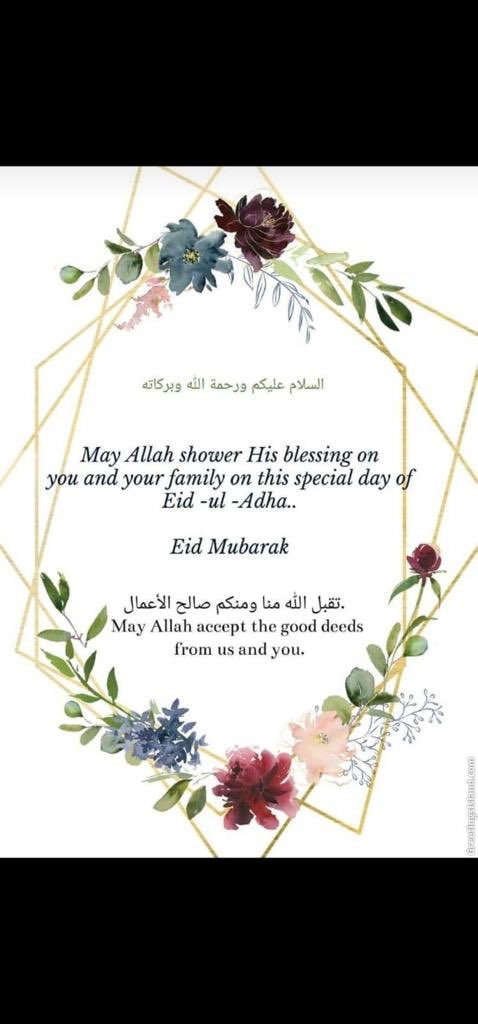 السلام عليكم ورحمة الله وبركاته
May Allah shower His blessing on
you and your family on this special day of
Eid -ul -Adha..
Eid Mubarak
تقبل الله منا ومنكم صالح الأعمال.
May Allah accept the good deeds
from us and you.
Greetingsisland.com